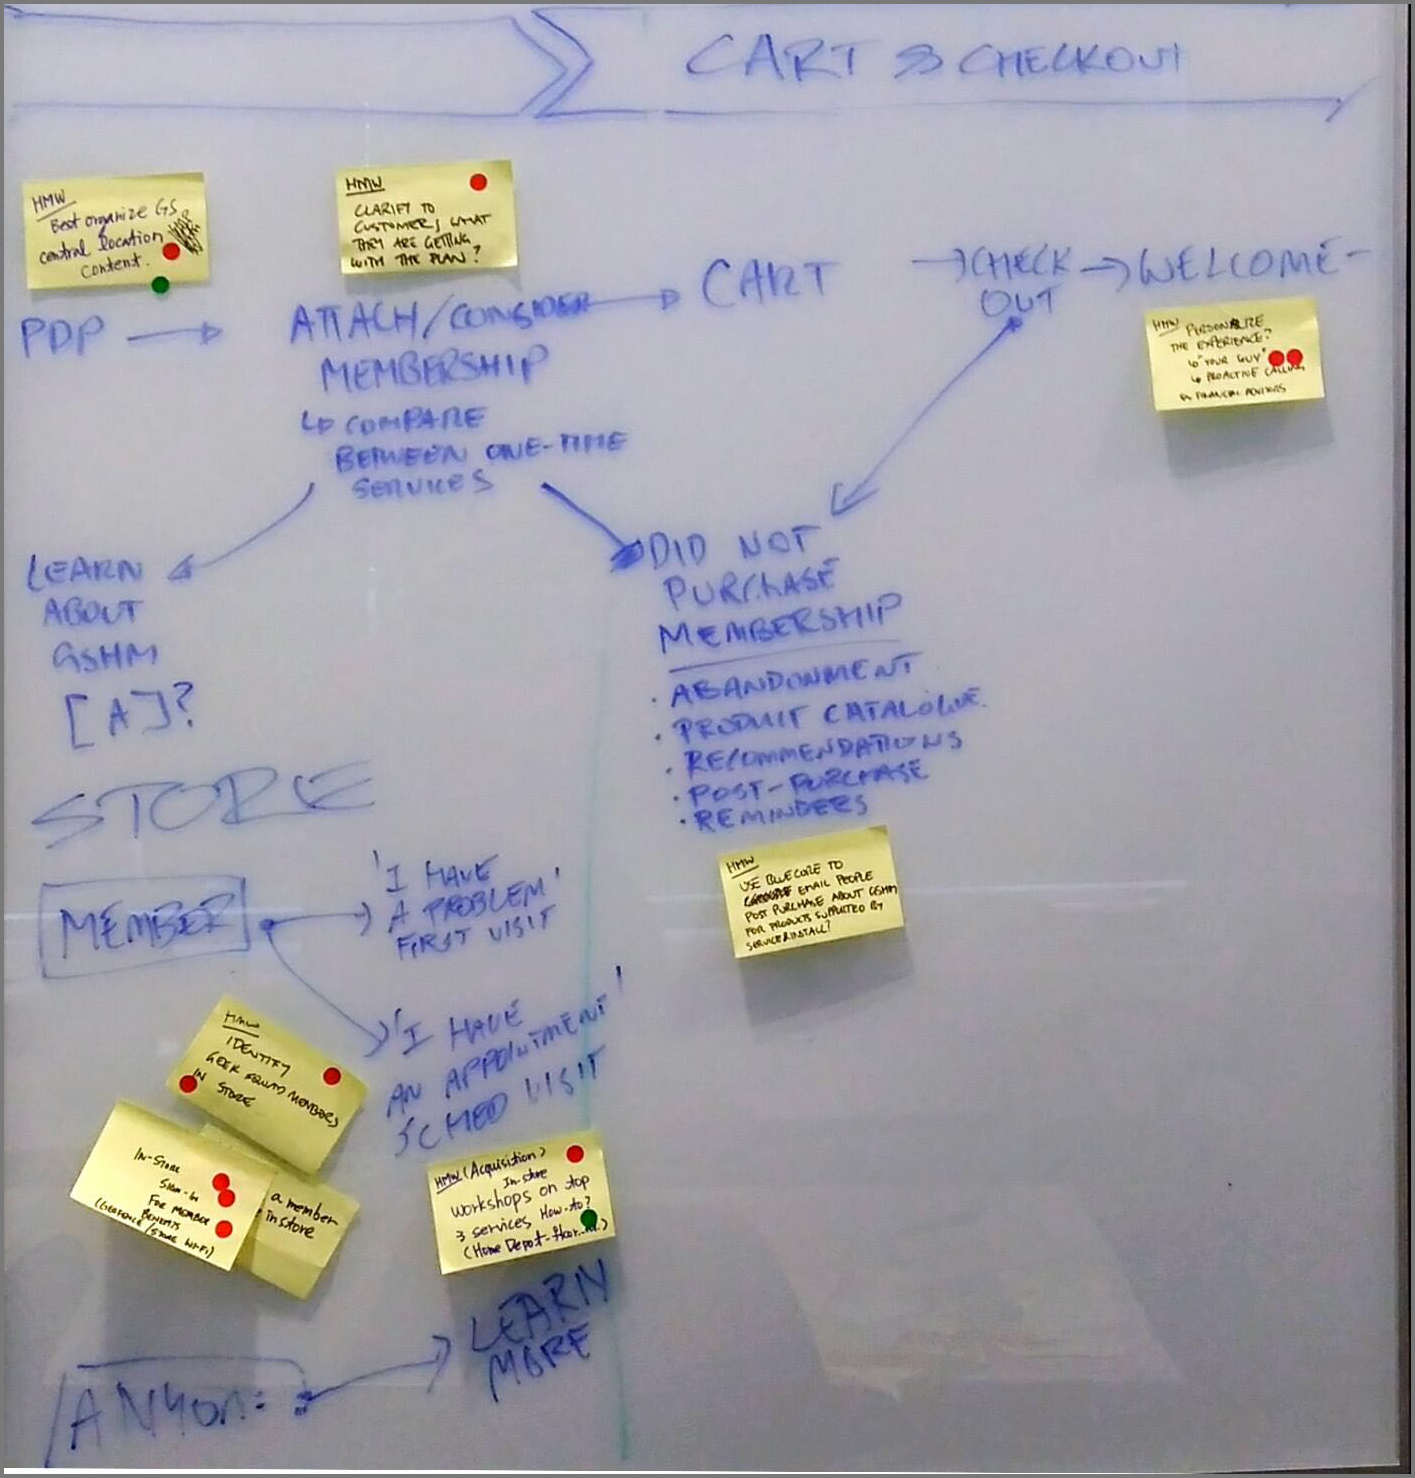 CART & CHECKOUT
HMW
Best organize GS
central location
content.
HMW
CLARIFY TO
CUSTOMERS WHAT
THEY ARE GETTING
WITH THE PLAN?
PDP
ATTACH/CONSIDER
MEMBERSHIP
COMPARE
BETWEEN ONE-TIME
SERVICES
CART
CHECK
OUT
WELCOME
HMW PERSONALIZE
THE EXPERIENCE?
"YOUR GUY"
PROACTIVE CALLING
FINANCIAL ADVISORS
LEARN
ABOUT
GSHM
[A]?
DID NOT
PURCHASE
MEMBERSHIP
· ABANDONMENT
· PRODUCT CATALOGUE
· RECOMMENDATIONS
· POST-PURCHASE
· REMINDERS
HMW
USE BLUECORE TO
EMAIL PEOPLE
POST PURCHASE ABOUT GSHM
FOR PRODUCTS SUPPORTED BY
SERVICE/INSTALL?
STORE
MEMBER
'I HAVE
A PROBLEM'
FIRST VISIT
'I HAVE
AN APPOINTMENT'
SCHED VISIT
HMW
IDENTIFY
GEEK SQUAD MEMBERS
IN STORE
IN-STORE
SIGN-IN
FOR MEMBER
BENEFITS
(GEOFENCE/STORE WI-FI)
a member
in store
HMW (Acquisition)
In-store
workshops on top
3 services How-to?
(Home Depot-
LEARN
MORE
ANYON: